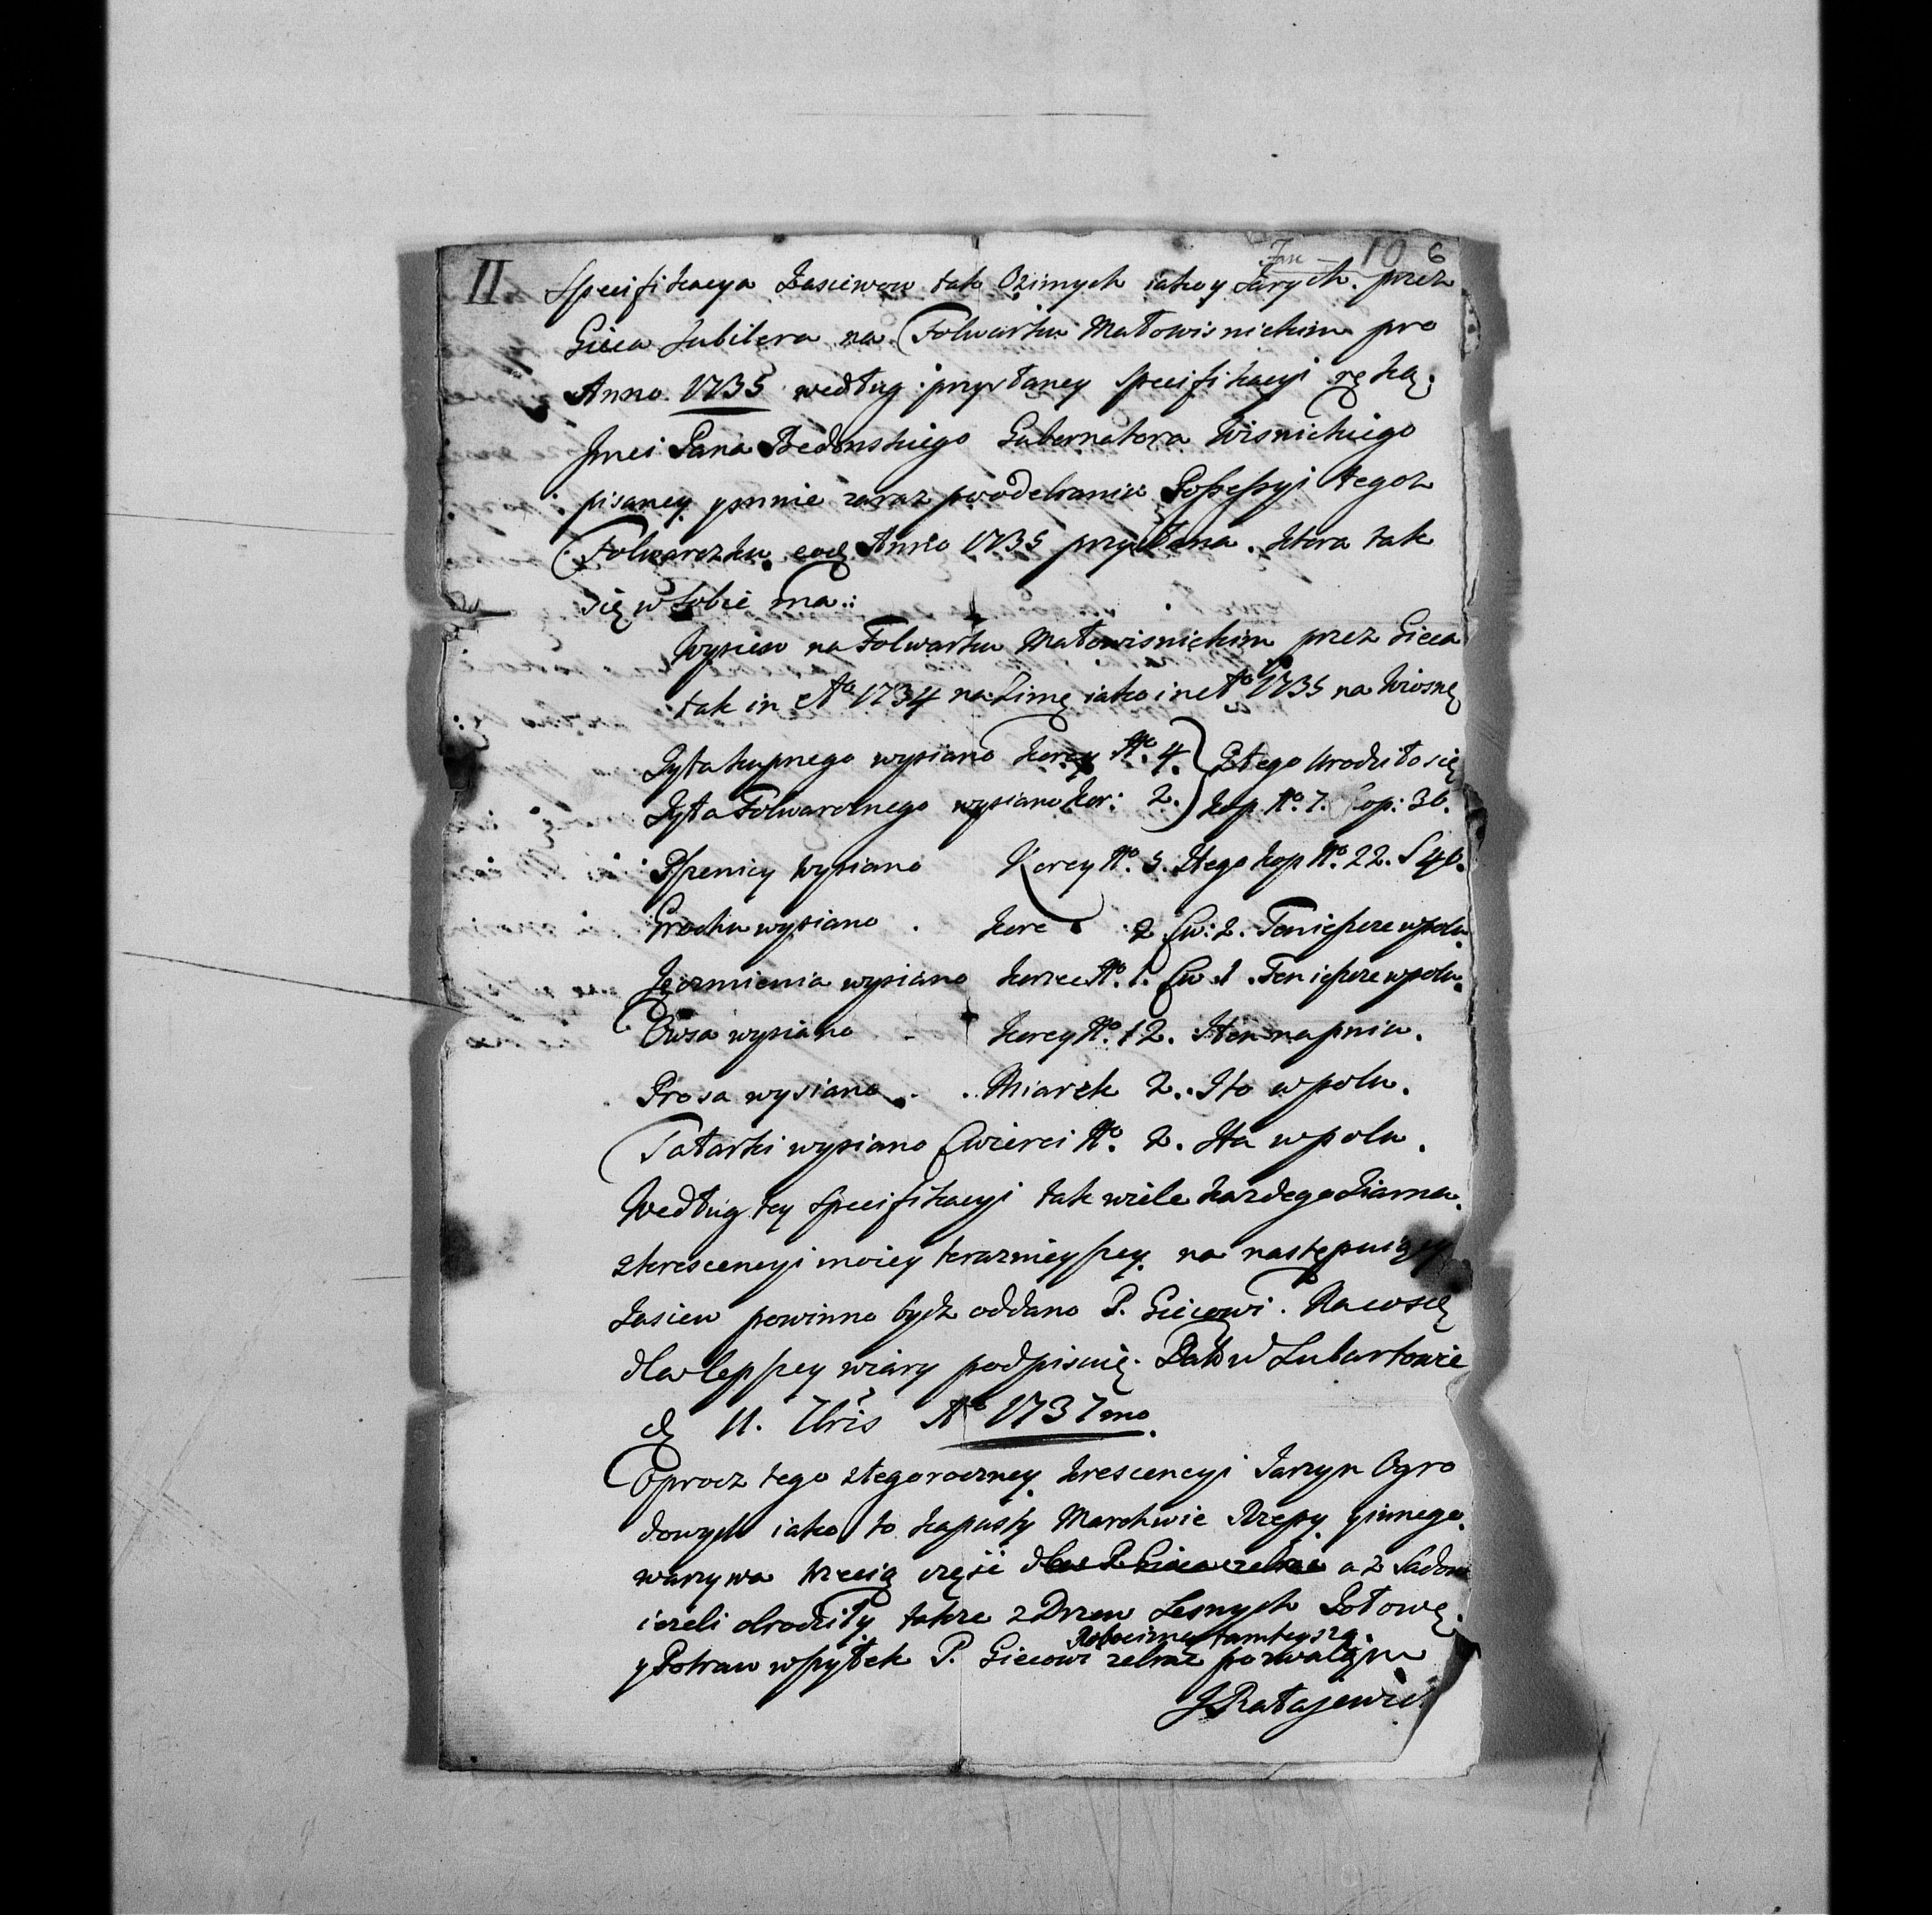 II
Jan — 10 6
Specifikacya Zasiewow tak Ozimych iako y Jarych. przez
Gieca Jubilera na Folwarku Małowisnickim pro
Anno. 1735 według przysłaney Specifikacyi ręką
Jmci Pana Gubernatora Wisnickiego
pisaney ymnie zaraz poodebraniu Possessyi tegoz
Folwarczku eod. Anno 1735 przysłana. ktora tak
się w sobie ma:
Wysiew na Folwarku Małowisnickim przez Gieca
tak in Ao 1734 na Zimę iako in Ao 1735 na Wiosnę
Zyta kupnego wysiano korcy No. 4. Ztego urodziło się
Zyta Folwarcznego wysiano kor: 2. kop. No. 7. Sop: 30.
Pszenicy wysiano Korcy No. 5. Ztego kop No. 22. S 40.
Grochu wysiano . korc 2 Cw: 2. Ten ieszcze wpolu
Jęczmienia wysiano korzec No. 1. Cw 1. Ten ieszcze wpolu.
Owsa wysiano - korcy No. 12. Iten na pniu.
Prosa wysiano . . Miarek 2. Ito w polu.
Tatarki wysiano Cwierci No. 2. Ita w polu.
Według tey Specifikacyi tak wiele kazdego Ziarna
zkrescencyi moiey teraznieyszey na następuiący
Zasiew powinno bydz oddano P. Giecowi. Na co się
dla lepszey wiary podpisuię. Dat w Lubartowie
d. 11. 7bris Ao 1737mo.
Oprocz tego ztegoroczney krescencyi Jarzyn Ogro
dowych iako to kapusty Marchwie Rzepy yinnego
warzywa trzecią częsc a z Sadow
iezeli obrodziły takze z Drzew Lesnych Połowę
Robocizną tamteyszą.
y Potraw wszytek P. Giecowi zebrać pozwalam
J Ratajewicz